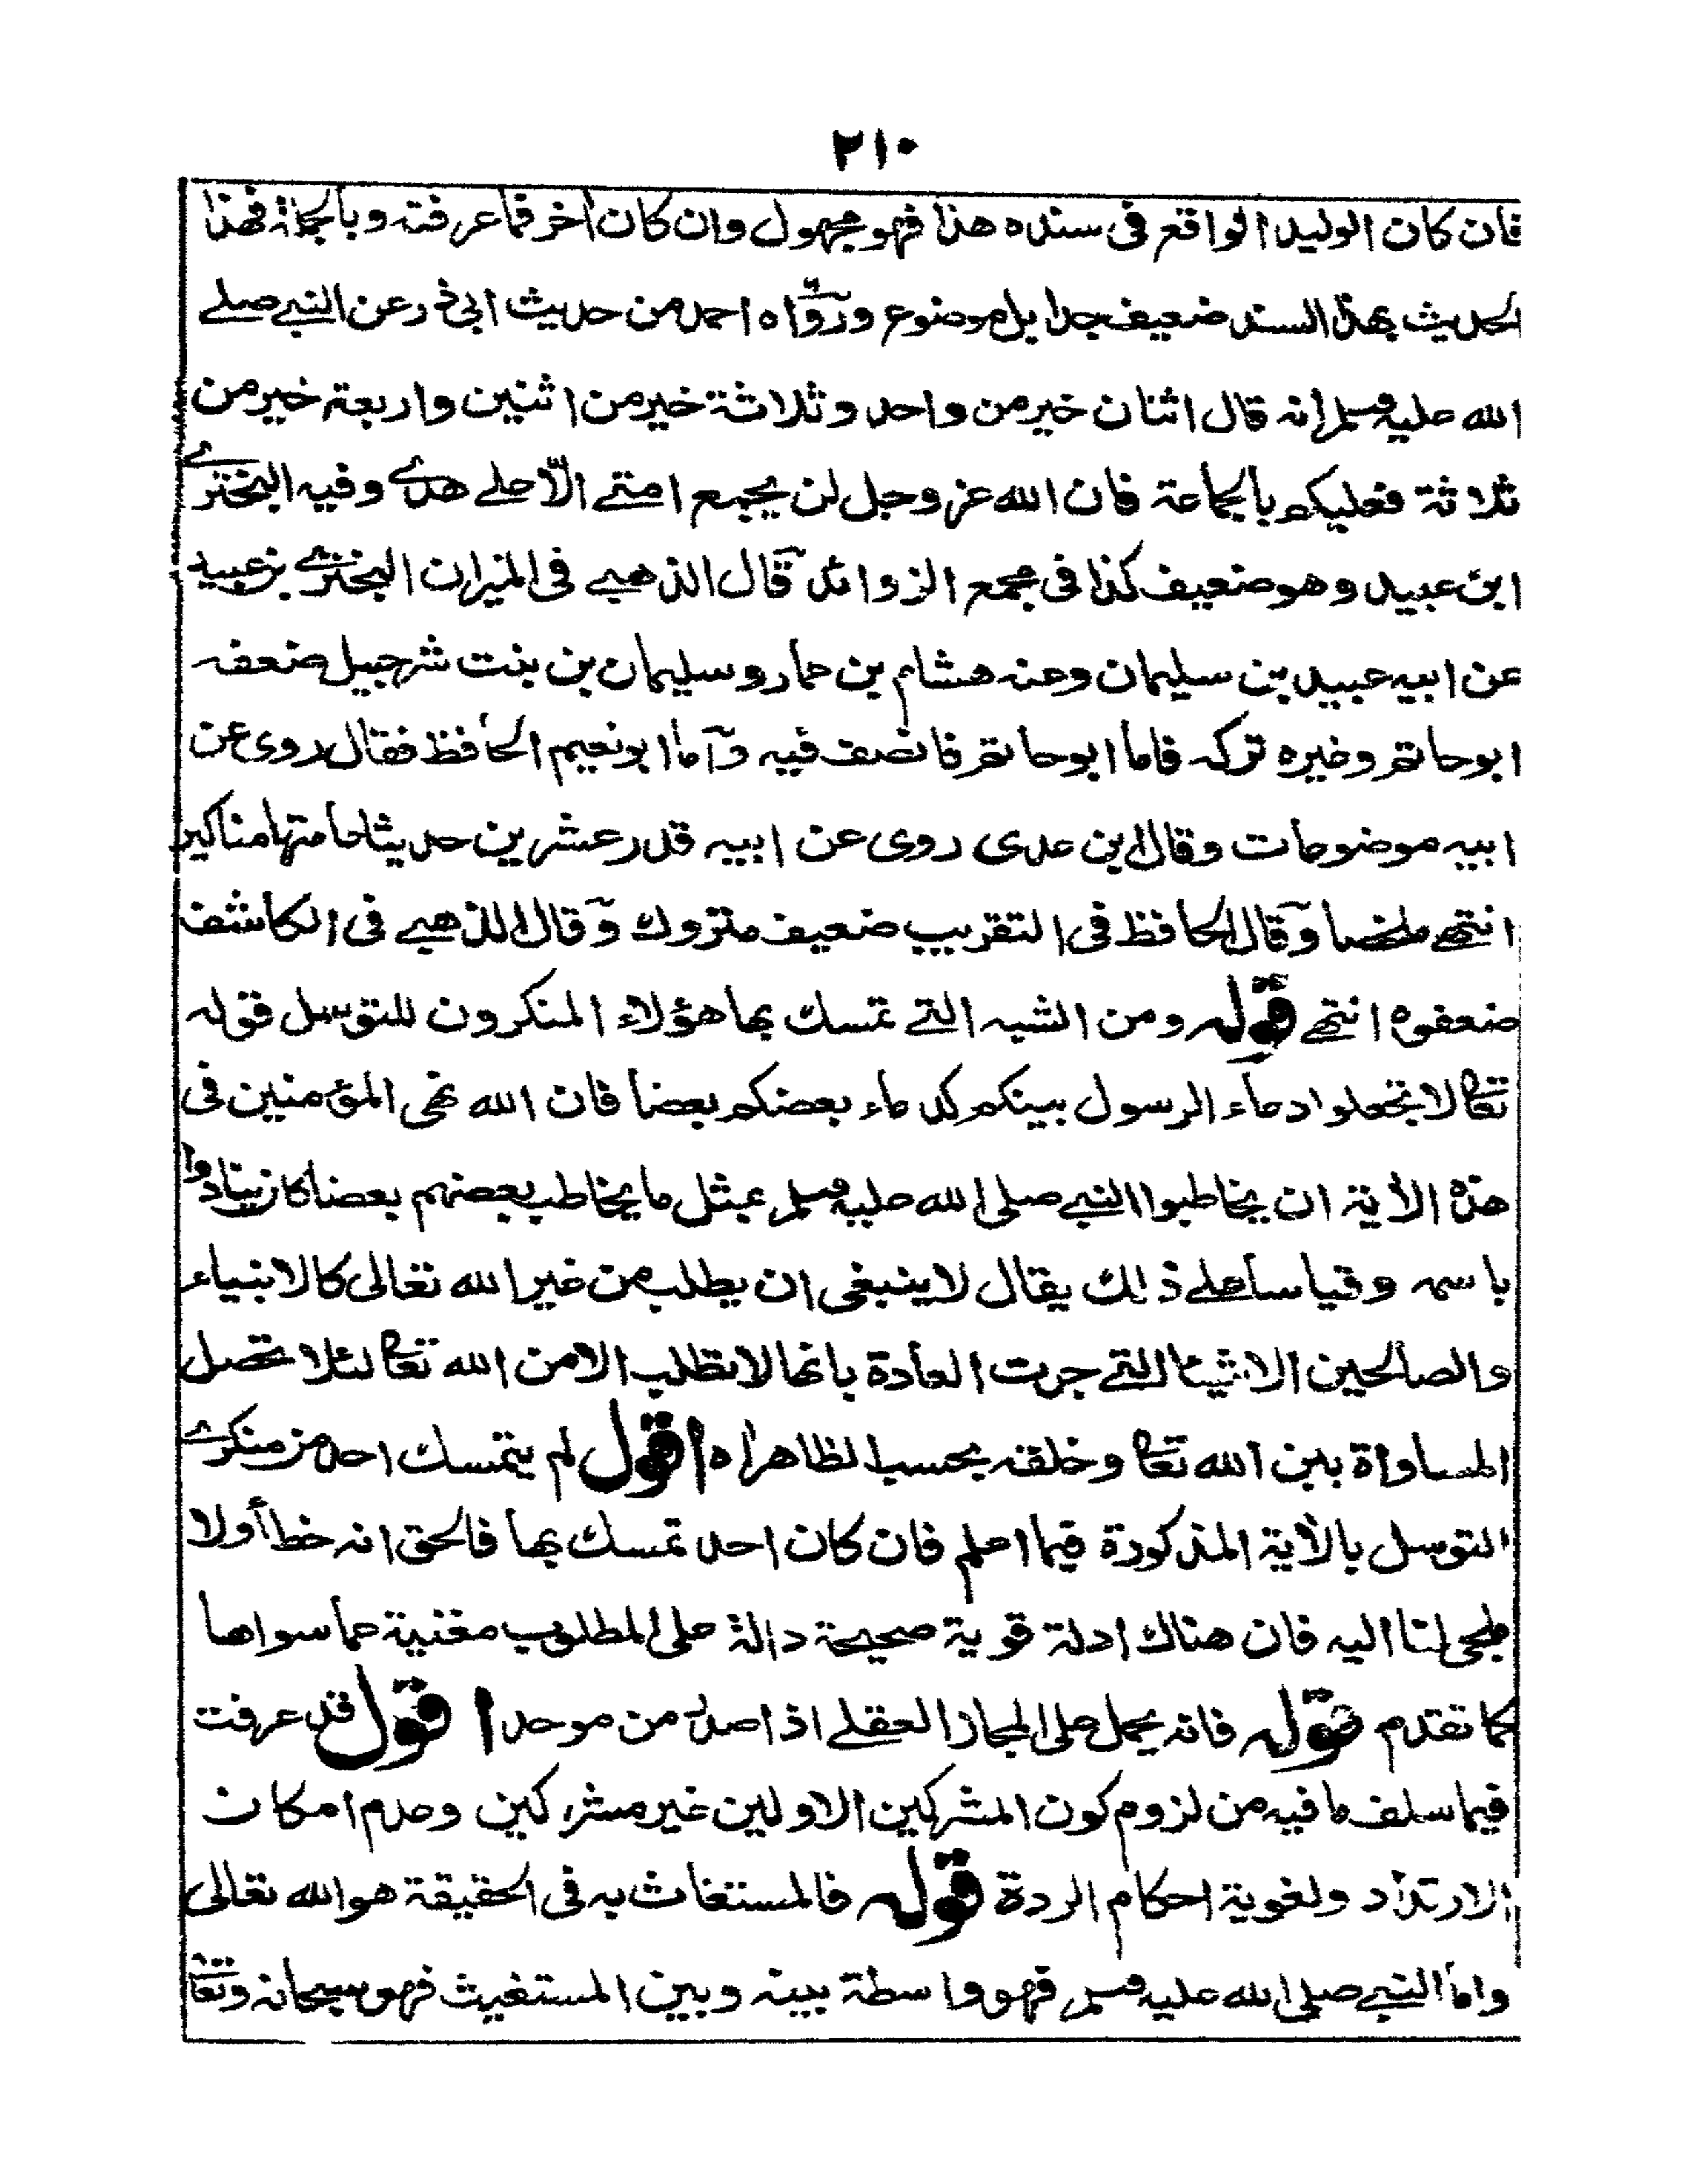 ٢١٠
فان كان الوليد الواقع فى سنده هذا فهو مجهول وان كان اخر فما عرفته وبالجملة فهذا
الحديث بهذا السند ضعيف جدا بل موضوع ورواه احمد من حديث ابى ذر عن النبي صلے
الله عليه وسلم انه قال اثنان خير من واحد وثلاثة خير من اثنين واربعة خير من
ثلاثة فعليكم بالجماعة فان الله عز وجل لن يجمع امتے الّا علے هدے وفيه البخترے
ابن عبيد وهو ضعيف كذا فى مجمع الزوائد قال الذهبے فى الميزان البخترے بن عبيد
عن ابيه عبيد بن سليمان وعنه هشام بن عمار وسليمان بن بنت شرحبيل ضعفه
ابوحاتم وغيره تركه فاما ابوحاتم فانصف فيه واما ابونعيم الحافظ فقال روى عن
ابيه موضوعات وقال ابن عدى روى عن ابيه قدر عشرين حديثا عامتها مناكير
انتهے ملخصا وقال الحافظ فى التقريب ضعيف متروك وقال الذهبے فى الكاشف
ضعفوه انتهے قوله ومن الشبه التے تمسك بها هؤلاء المنكرون للتوسل قوله
تعالى لا تجعلوا دعاء الرسول بينكم كدعاء بعضكم بعضا فان الله نهى المؤمنين فى
هذه الأية ان يخاطبوا النبي صلى الله عليه وسلم بمثل ما يخاطب بعضهم بعضا كان ينادوا
باسمه وقياسا علے ذلك يقال لا ينبغى ان يطلب من غير الله تعالى كالانبياء
والصالحين الاشياء التے جرت العادة بانها لا تطلب الا من الله تعالى لئلا تحصل
المساواة بين الله تعالى وخلقه بحسب الظاهر اه اقول لم يتمسك احد من منكرے
التوسل بالأية المذكورة فيما اعلم فان كان احد تمسك بها فالحق انه خطأ ولا
ملجى لنا اليه فان هناك ادلة قوية صحيحة دالة على المطلوب مغنية عما سواها
كما تقدم قوله فانه يحمل على المجاز العقلے اذا صدر من موحد اقول قد عرفت
فيما سلف ما فيه من لزوم كون المشركين الاولين غير مشركين وعدم امكان
الارتداد ولغوية احكام الردة قوله فالمستغاث به فى الحقيقة هو الله تعالى
واما النبي صلى الله عليه وسلم فهو واسطة بينه وبين المستغيث فهو سبحانه وتعالى